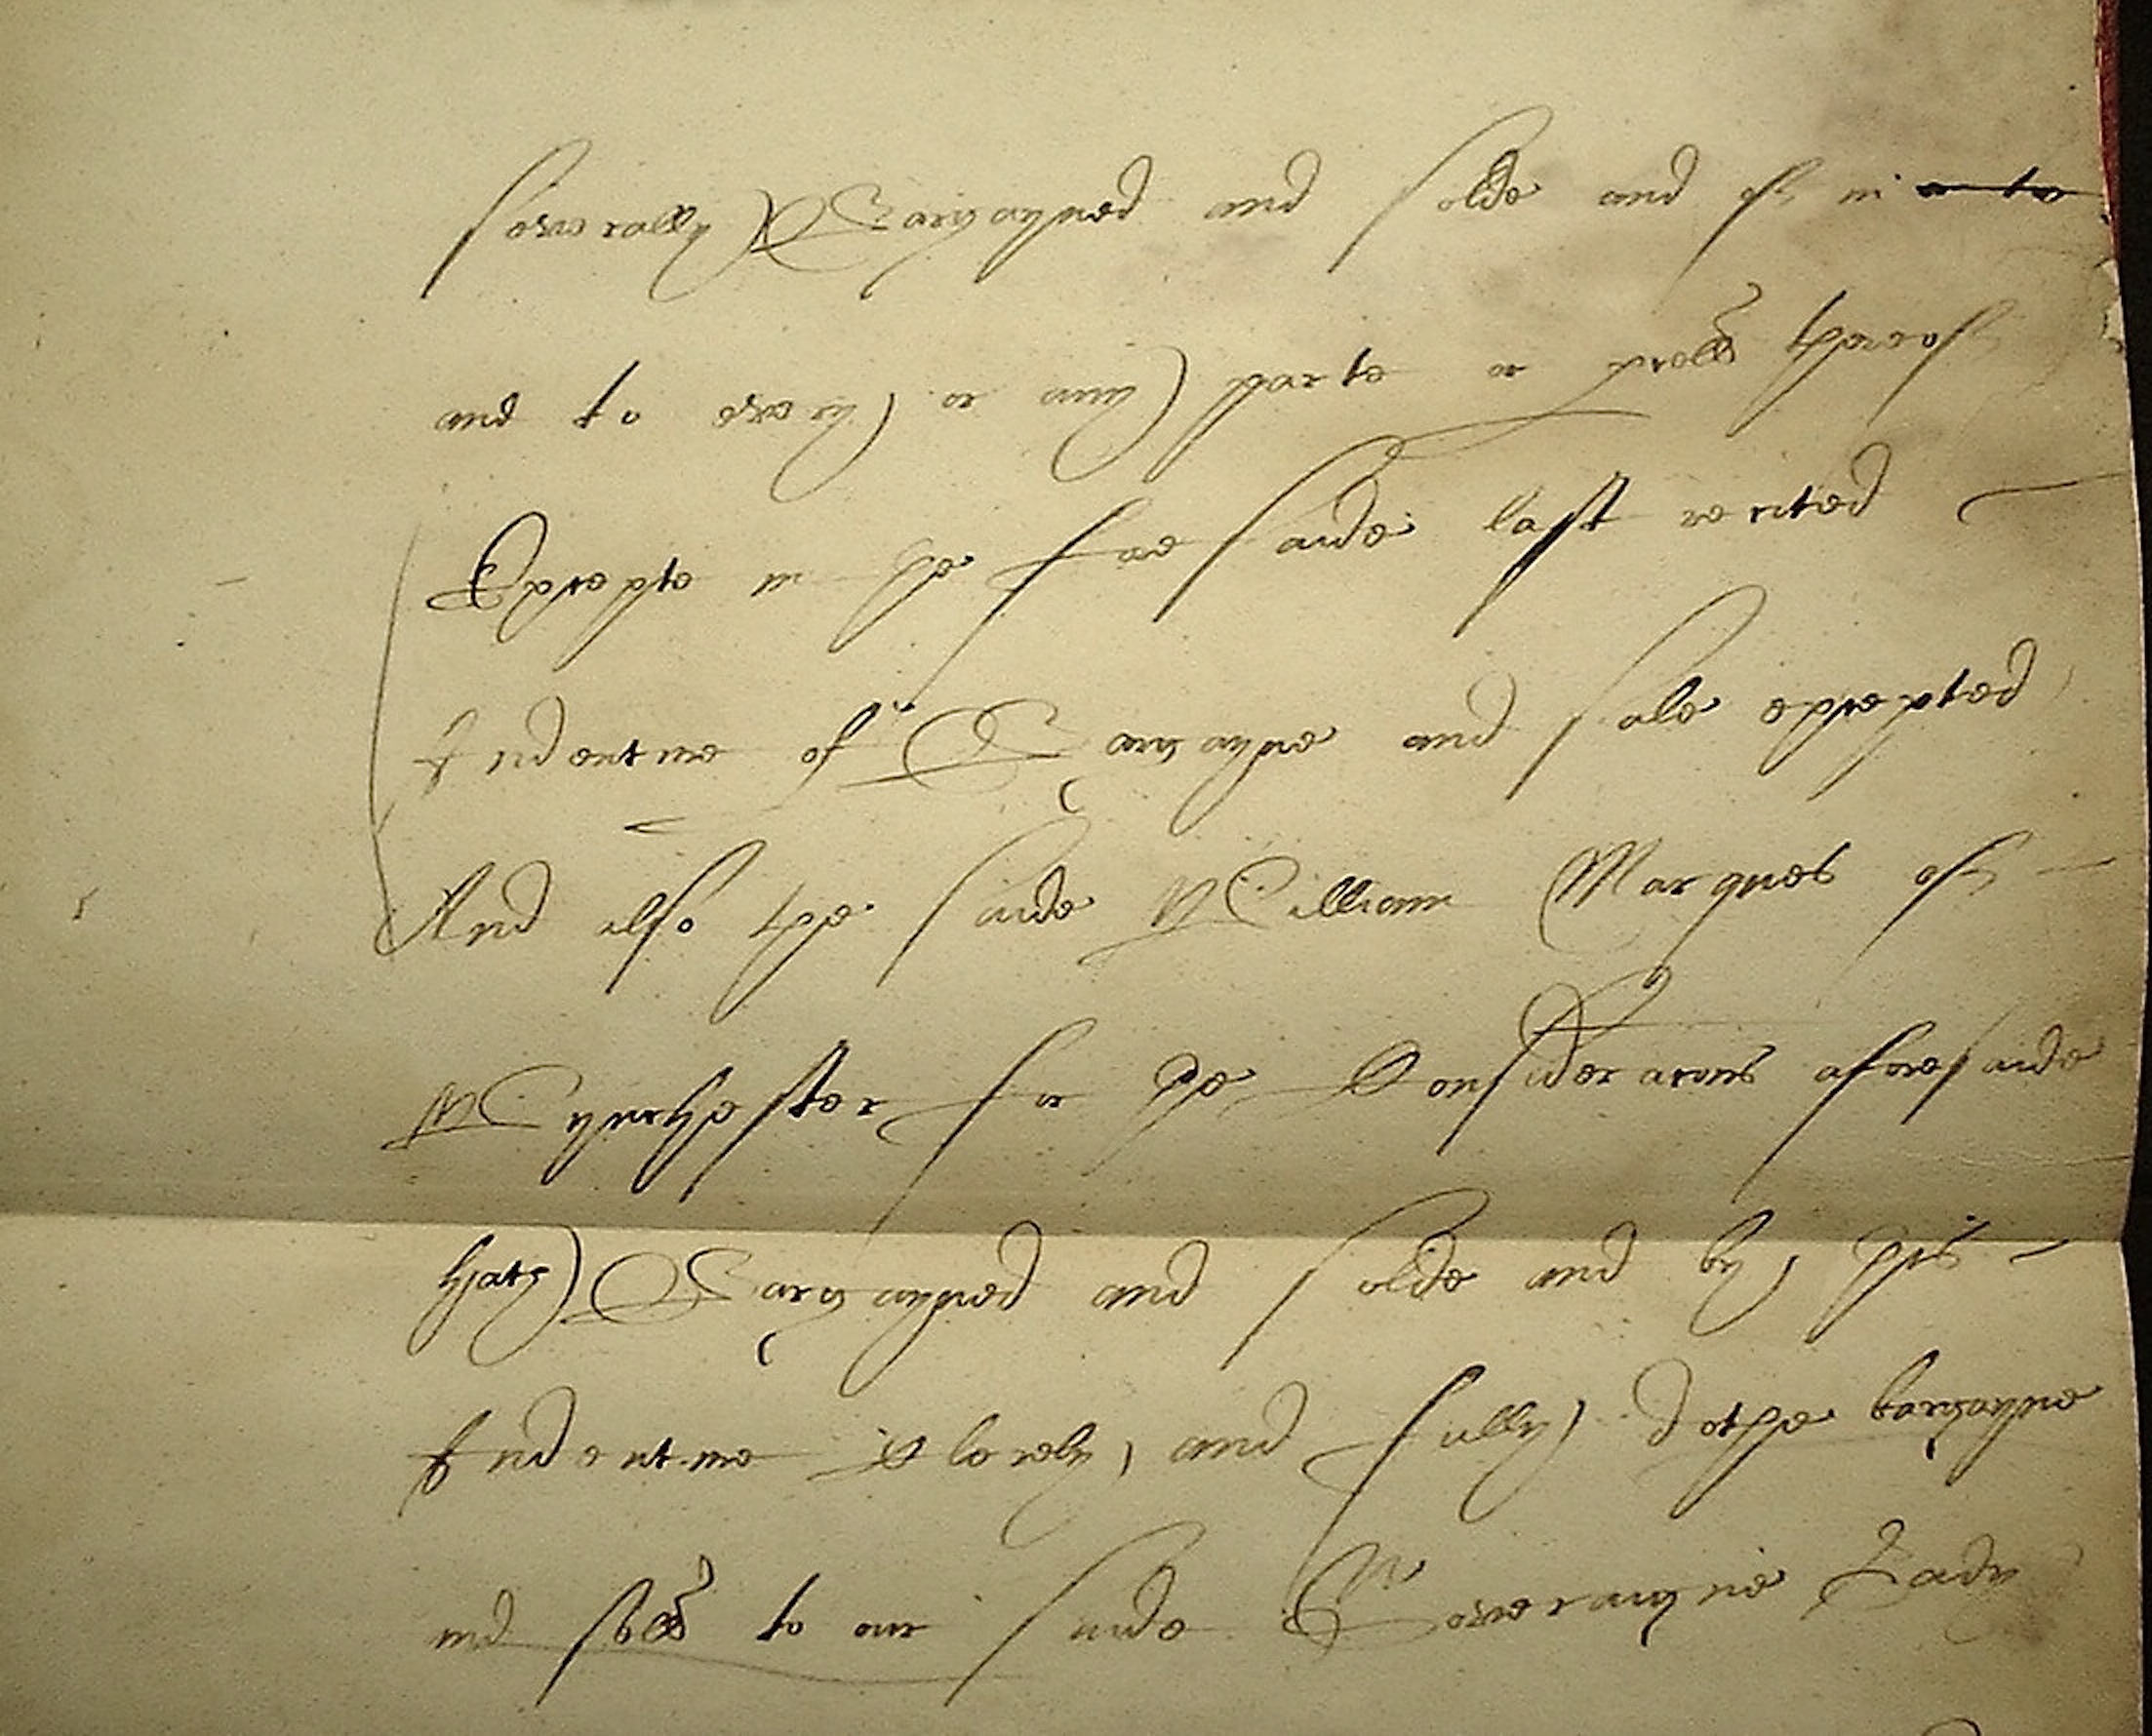 severally Bargayned and solde and of in
and to every or any parte or p[ar]cell thereof
Excepte in the foresaide last recited
Indenture of Bargayne and sale excepted
And also the saide William Marques of
Wynchester for the Consideracons aforesaide
hath Bargayned and solde and by this
Indenture Clerely and fully dothe bargayne
and sell to our saide Soveraigne Lady